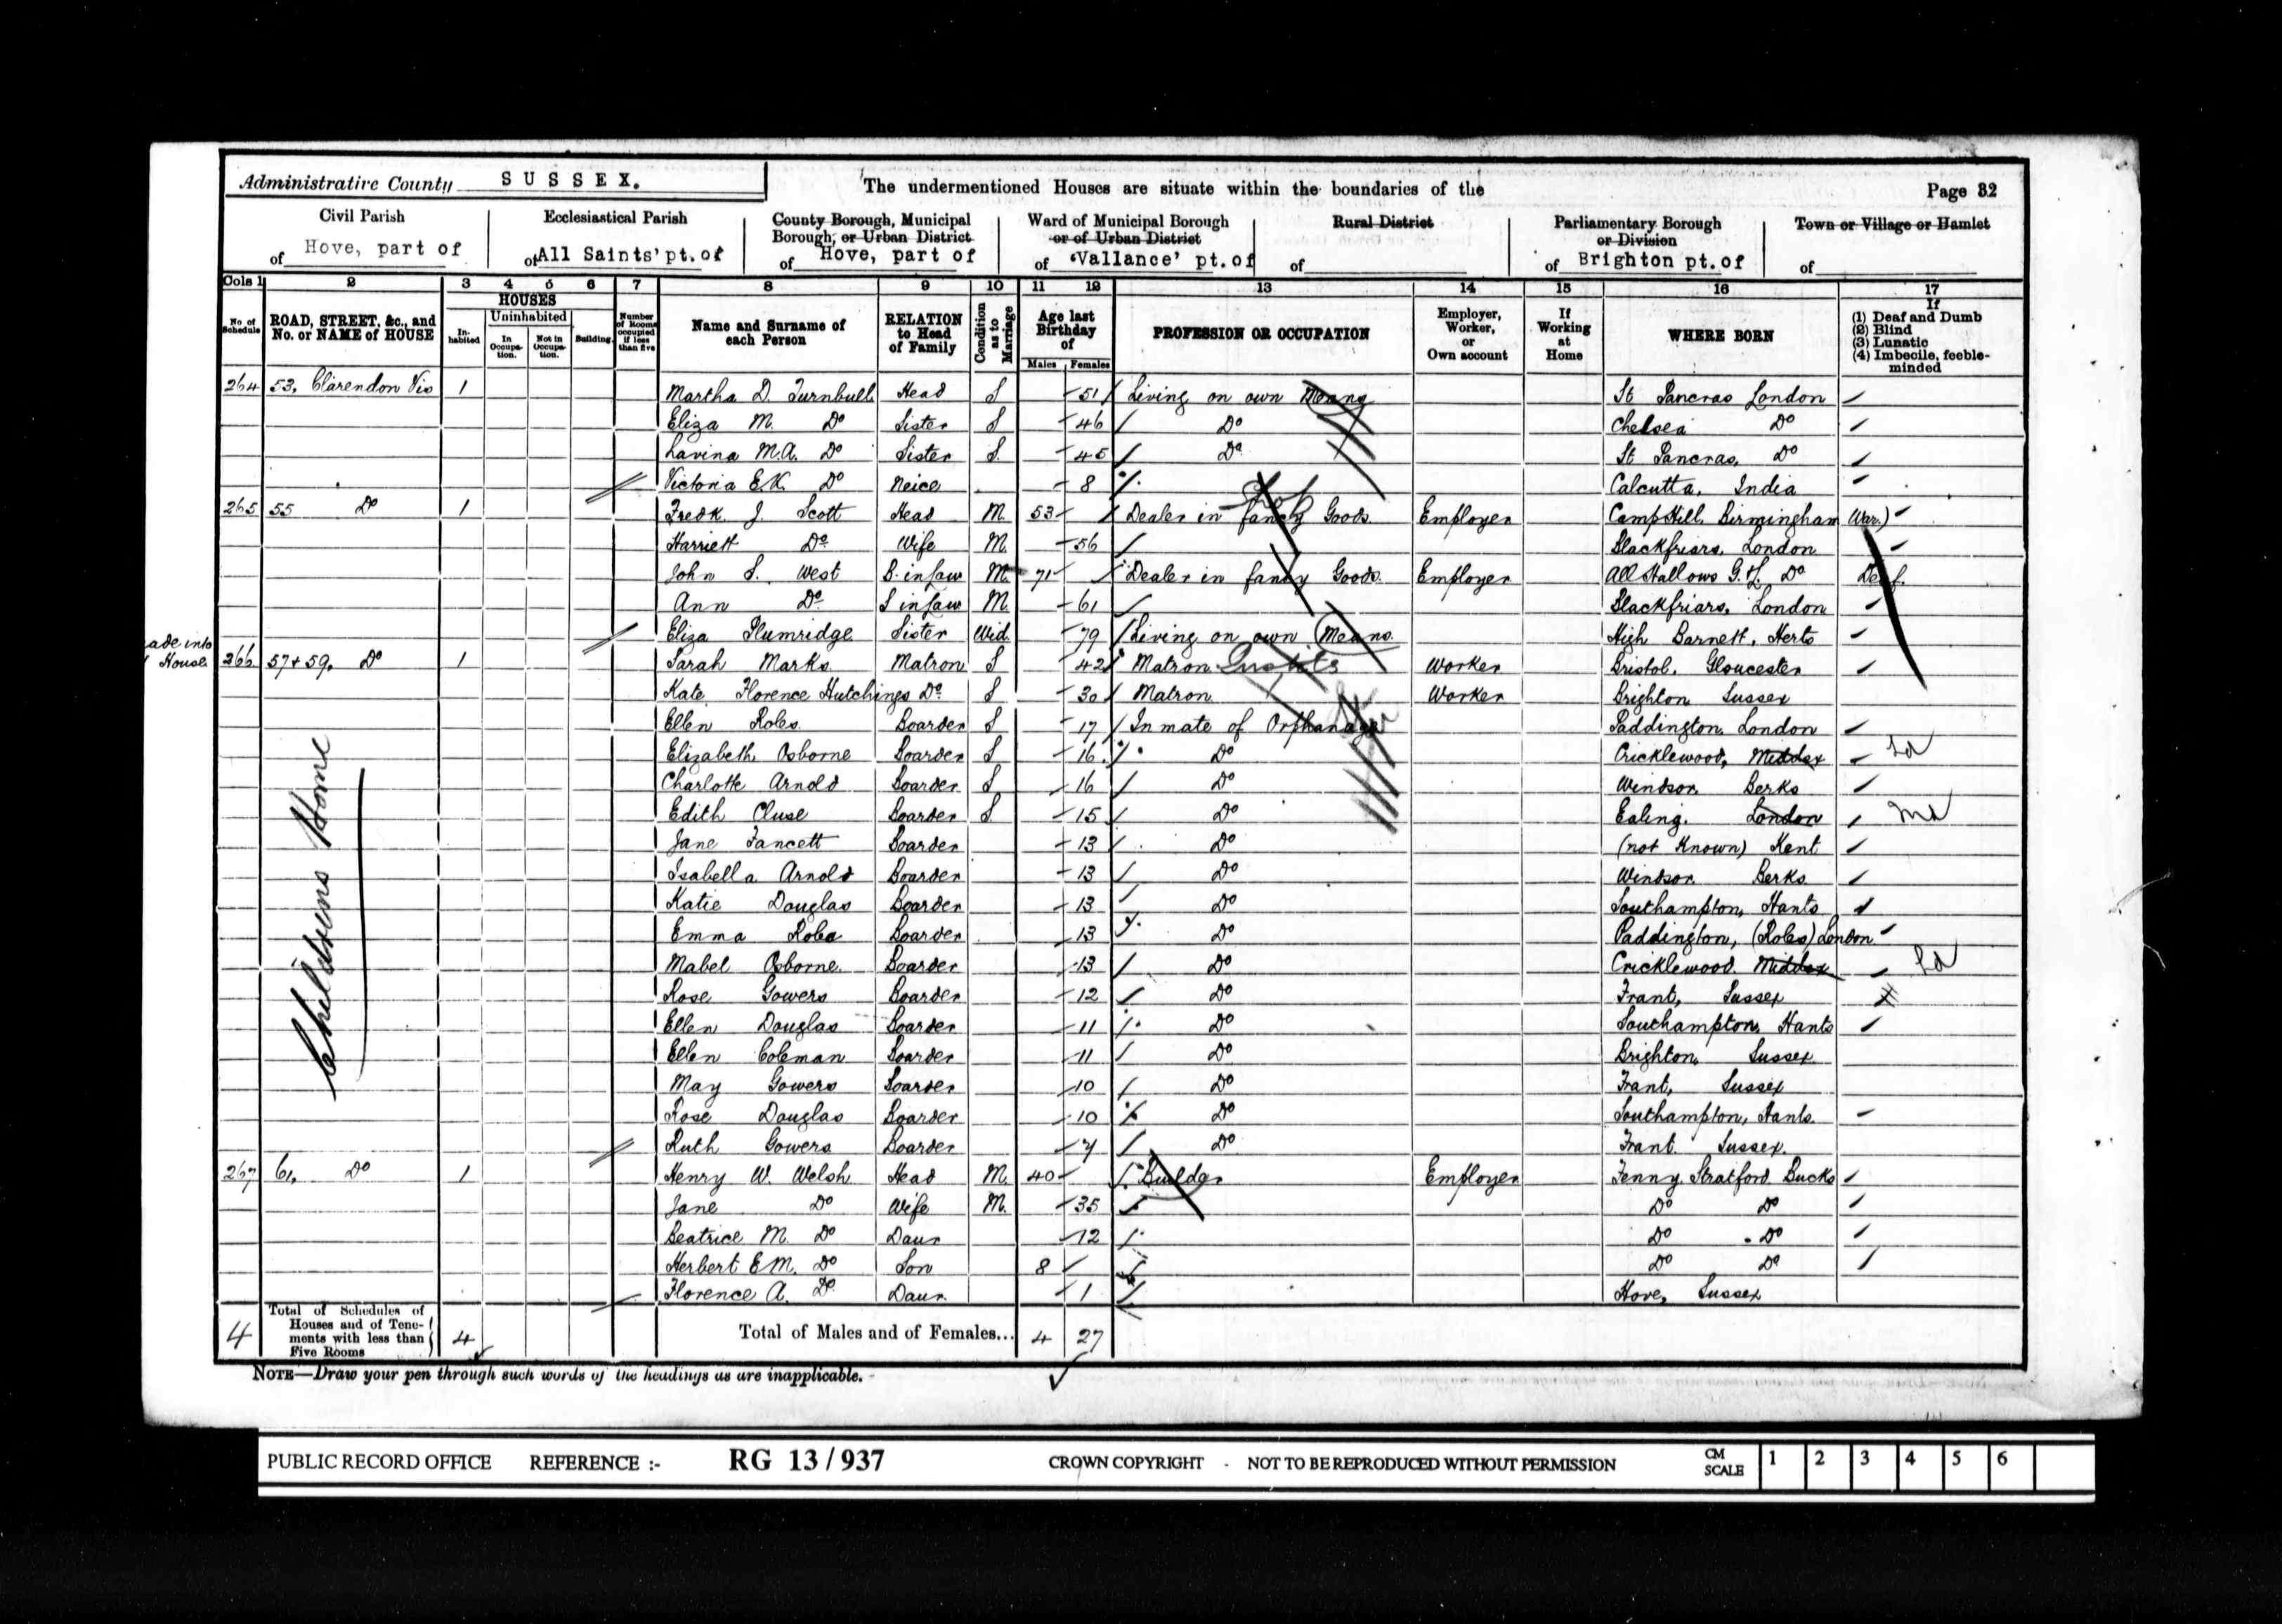 Administrative County SUSSEX. The undermentioned Houses are situate within the boundaries of the Page 32
Civil Parish of Hove, part of
Ecclesiastical Parish of All Saints' pt. of
County Borough, Municipal Borough, or Urban District of Hove, part of
Ward of Municipal Borough or of Urban District of 'Vallance' pt. of
Rural District of
Parliamentary Borough or Division of Brighton pt. of
Town or Village or Hamlet of
Cols 1 2 3 4 5 6 7 8 9 10 11 12 13 14 15 16 17
No. of Schedule
ROAD, STREET, &c., and No. or NAME of HOUSE
HOUSES
Inhabited
Uninhabited
In Occupation.
Not in Occupation.
Building.
Number of Rooms occupied if less than five
Name and Surname of each Person
RELATION to Head of Family
Condition as to Marriage
Age last Birthday of
Males Females
PROFESSION OR OCCUPATION
Employer, Worker, or Own account
If Working at Home
WHERE BORN
If
(1) Deaf and Dumb
(2) Blind
(3) Lunatic
(4) Imbecile, feeble-minded
264 53, Clarendon Vis 1 Martha D. Turnbull Head S 51 Living on own Means St Pancras London
Eliza M. Do Sister S 46 Do Chelsea Do
Lavina M.A. Do Sister S. 45 Do St Pancras, Do
Victoria E.K. Do Neice 8 Calcutta, India
265 55 Do 1 Fredk. J. Scott Head M 53 Dealer in fancy Goods Employer Camp Hill, Birmingham War.)
Harriett Do Wife M. 56 Blackfriars, London
John S. West B. in law M 71 Dealer in fancy Goods. Employer All Hallows G. & L. Do Deaf.
Ann Do S in law M 61 Blackfriars, London
Eliza Plumridge Sister Wid. 79 Living on own Means. High Barnett, Herts
ade into
House
266 57+59, Do 1 Sarah Marks Matron S 42 Matron Worker Bristol, Gloucester
Kate Florence Hutchings Do S 30 Matron Worker Brighton Sussex
Ellen Roles Boarder S 17 Inmate of Orphanage Paddington, London
Elizabeth Osborne Boarder S 16 Do Cricklewood, Middlex Ld
Charlotte Arnold Boarder S 16 Do Windsor Berks
Edith Cluse Boarder S 15 Do Ealing. London Mx
Jane Fancett Boarder 13 Do (not Known) Kent
Isabella Arnold Boarder 13 Do Windsor Berks
Katie Douglas Boarder 13 Do Southampton, Hants
Emma Roles Boarder 13 Do Paddington, (Roles) London
Mabel Osborne Boarder 13 Do Cricklewood. Middlex Ld
Rose Gowers Boarder 12 Do Frant, Sussex
Ellen Douglas Boarder 11 Do Southampton, Hants
Ellen Coleman Boarder 11 Do Brighton, Sussex
May Gowers Boarder 10 Do Frant, Sussex
Rose Douglas Boarder 10 Do Southampton, Hants.
Ruth Gowers Boarder 7 Do Frant. Sussex.
Childrens Home
267 61, Do 1 Henry W. Welsh Head M. 40 Builder Employer Fenny Stratford Bucks
Jane Do Wife M. 35 Do Do
Beatrice M. Do Daur 12 Do Do
Herbert E.M. Do Son 8 Do Do
Florence A. Do Daur. 1 Hove, Sussex
4 Total of Schedules of Houses and of Tenements with less than Five Rooms 4 Total of Males and of Females... 4 27
NOTE—Draw your pen through such words of the headings as are inapplicable.
PUBLIC RECORD OFFICE REFERENCE :- RG 13 / 937 CROWN COPYRIGHT - NOT TO BE REPRODUCED WITHOUT PERMISSION CM SCALE 1 2 3 4 5 6